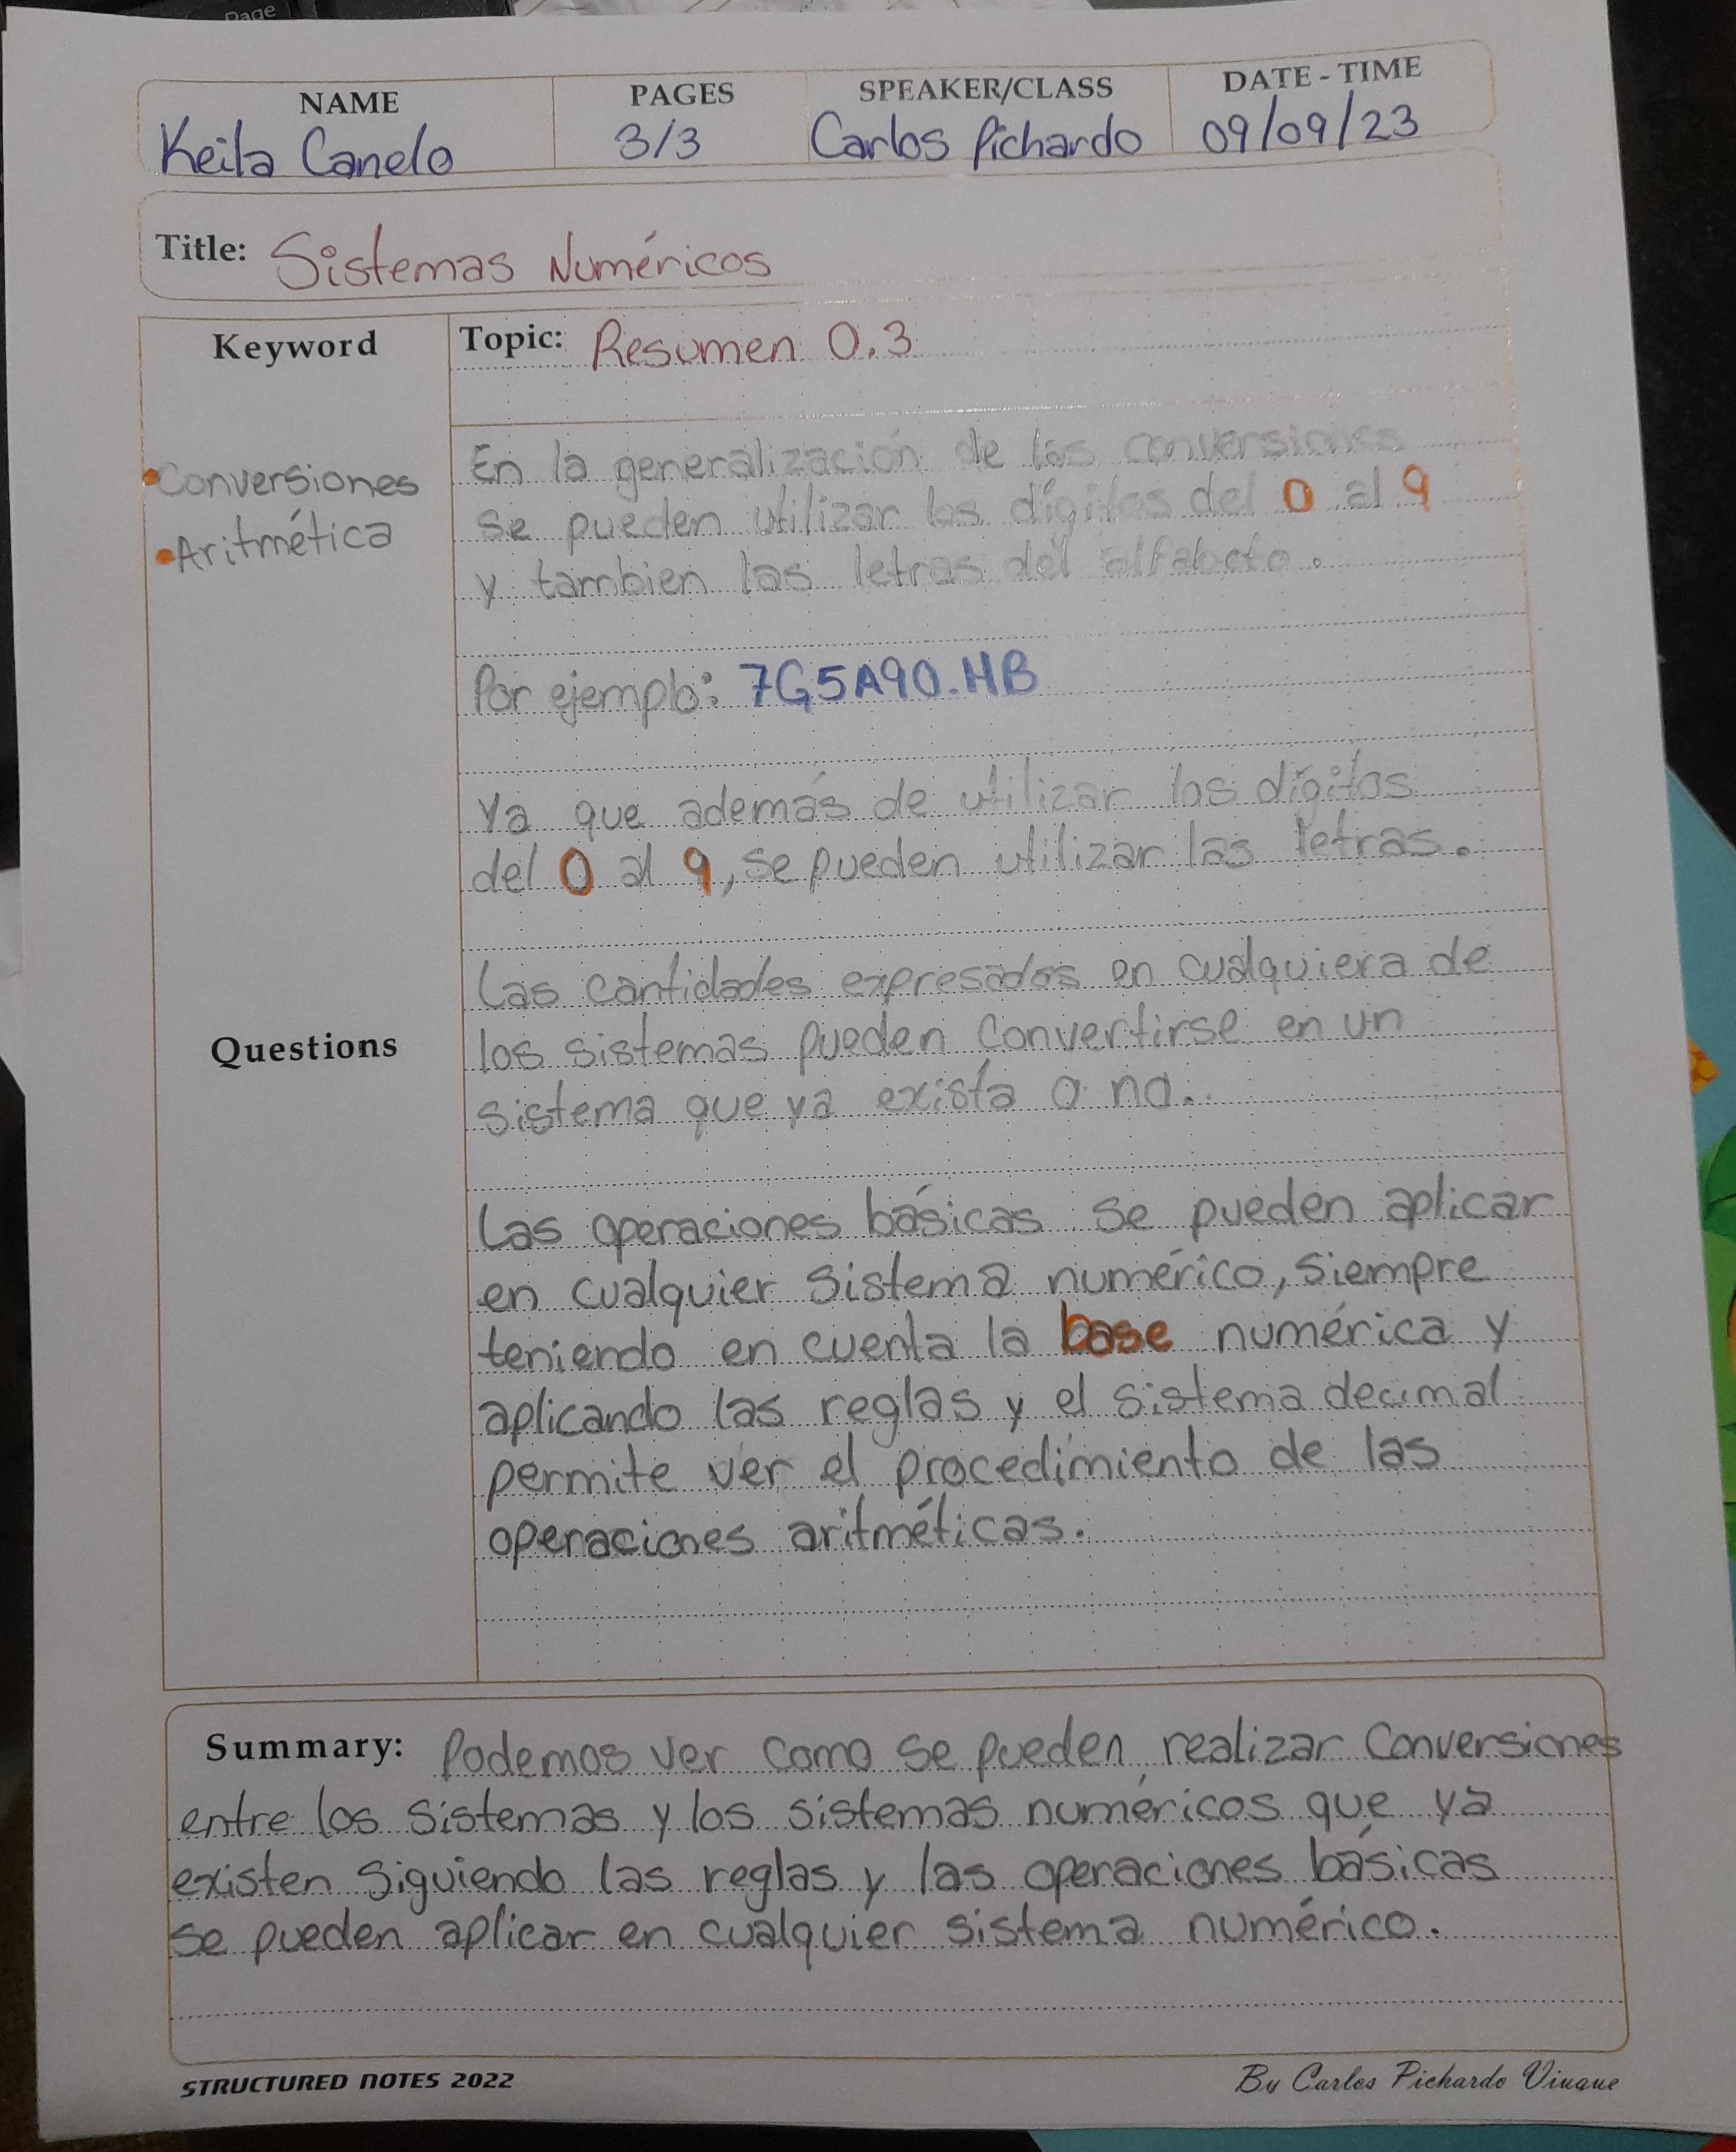 Page
NAME
PAGES
SPEAKER/CLASS
DATE - TIME
Keila Canelo
3/3
Carlos Pichardo
09/09/23
Title: Sistemas Numéricos
Keyword
Topic: Resumen 0.3
• Conversiones
• Aritmética
En la generalización de las conversiones
se pueden utilizar los dígitos del 0 al 9
y tambien las letras del alfabeto.
Por ejemplo: 7G5A90.HB
Ya que además de utilizar los dígitos
del 0 al 9, se pueden utilizar las letras.
Las cantidades expresadas en cualquiera de
los sistemas pueden convertirse en un
sistema que ya exista o no.
Questions
Las operaciones básicas se pueden aplicar
en cualquier sistema numérico, siempre
teniendo en cuenta la base numérica y
aplicando las reglas y el sistema decimal
permite ver el procedimiento de las
operaciones aritméticas.
Summary: Podemos ver como se pueden realizar conversiones
entre los sistemas y los sistemas numéricos que ya
existen siguiendo las reglas y las operaciones básicas
se pueden aplicar en cualquier sistema numérico.
STRUCTURED NOTES 2022
By Carlos Pichardo Viuque